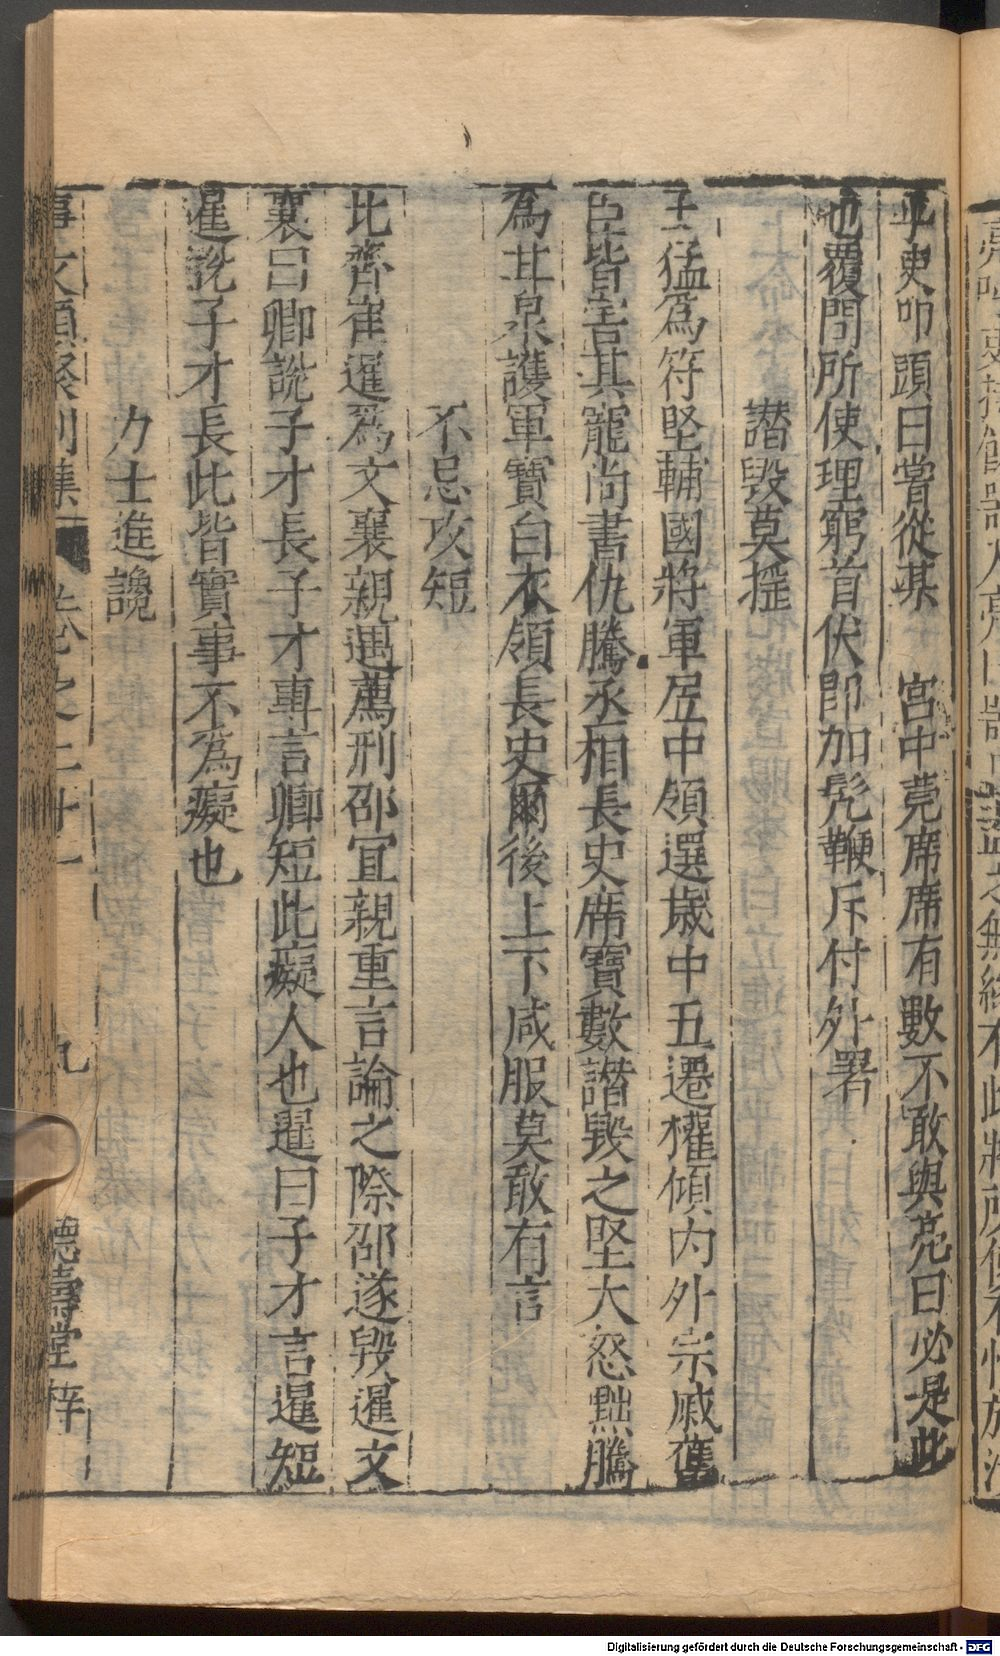 乎吏叩頭曰嘗從某　宮中莞席席有數不敢與亮曰必是此
也覆問所使理窮首伏即加髠鞭斥付外署
譖毀莫搖
王猛爲符堅輔國將軍居中領選歲中五遷權傾内外宗戚舊
臣皆害其寵尚書仇騰丞相長史席寶數譖毀之堅大怒黜騰
爲甘泉護軍寶白衣領長史爾後上下咸服莫敢有言
不忌攻短
比齊崔暹爲文襄親遇薦刑邵宜親重言論之際邵遂毀暹文
襄曰卿說子才長子才專言卿短此癡人也暹曰子才言暹短
暹說子才長此皆實事不爲癡也
力士進讒
事文類聚别集
卷之二十一
九
德壽堂梓
Digitalisierung gefördert durch die Deutsche Forschungsgemeinschaft - DFG